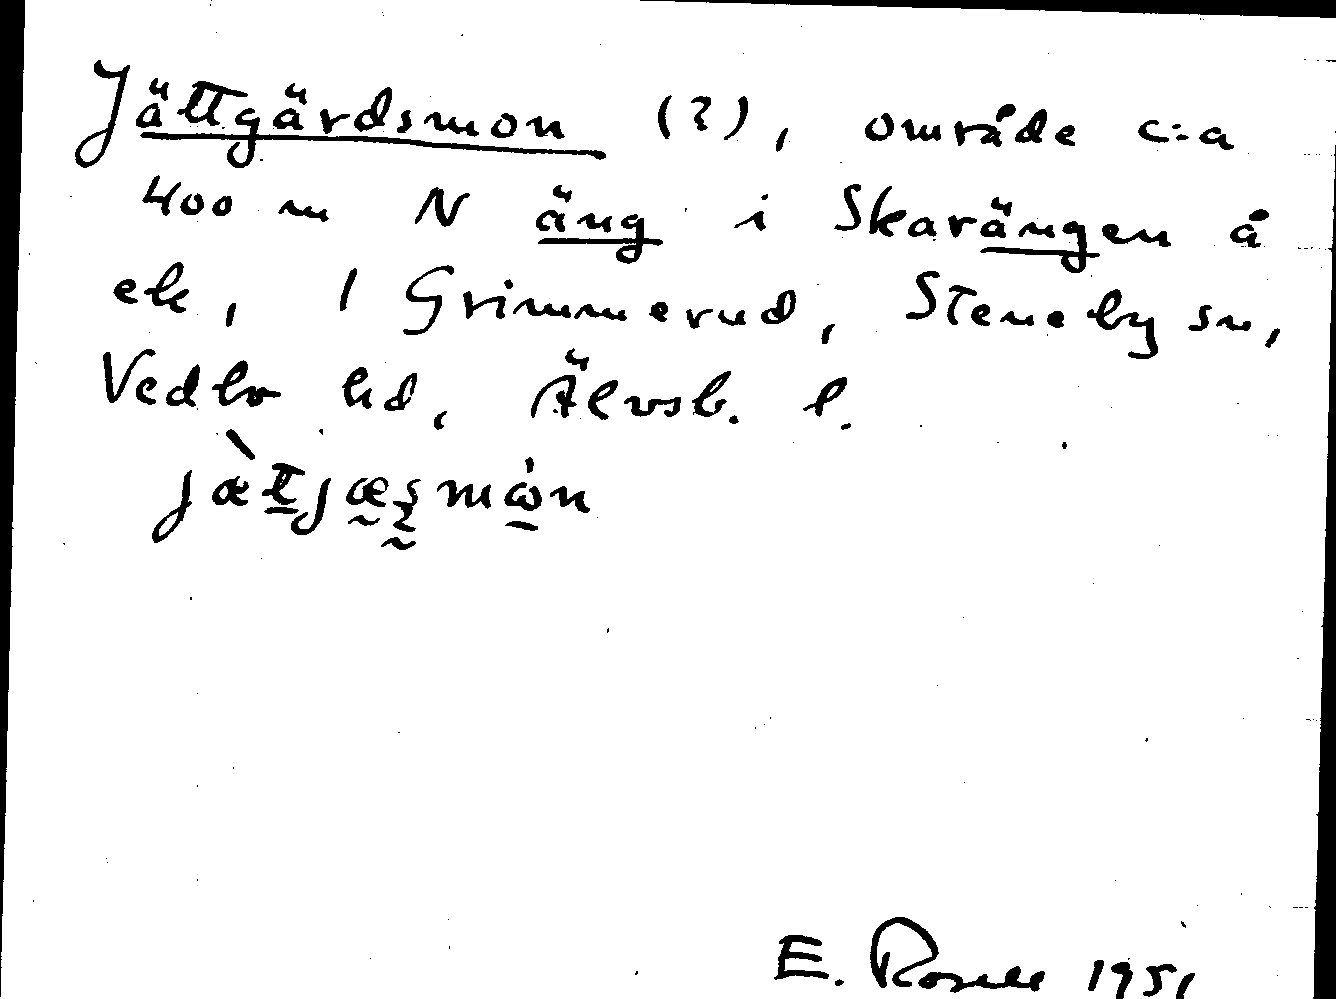 Jättgärdsmon (?), område c:a
400 m N äng i Skarängen å
ek, 1 Grimmerud, Steneby sn,
Vedbo hd, Älvsb. l.
E. Rosell 1951